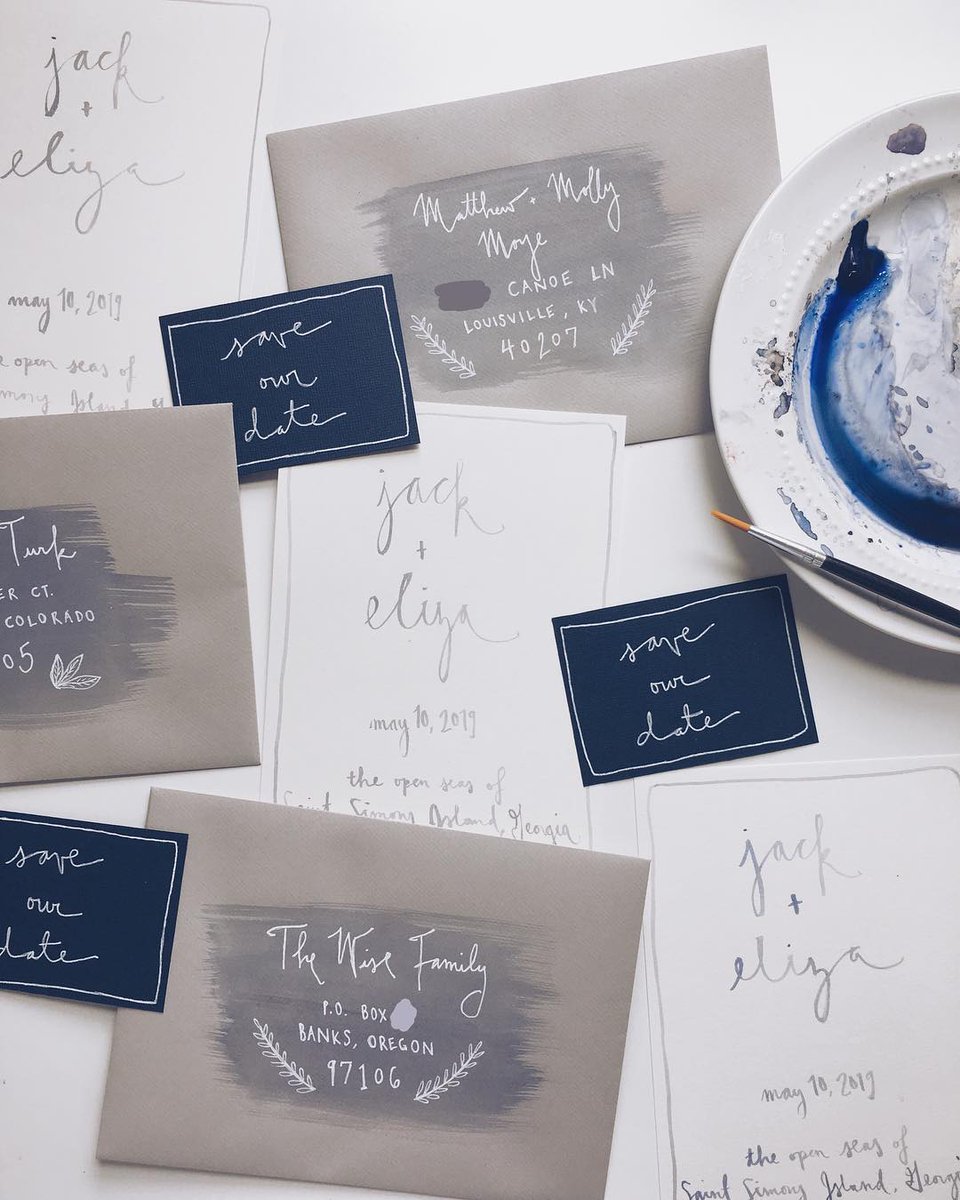 jack
+
eliza
may 10, 2019
the open seas of
Simons Island,
Matthew + Molly
Moye
CANOE LN
LOUISVILLE, KY
40207
save
our
date
Turk
ER CT.
COLORADO
05
jack
+
eliza
may 10, 2019
the open seas of
Saint Simons Island, Georgia
save
our
date
save
our
date
The Wise Family
P.O. BOX
BANKS, OREGON
97106
jack
+
eliza
may 10, 2019
the open seas of
Saint Simons Island, Georgia